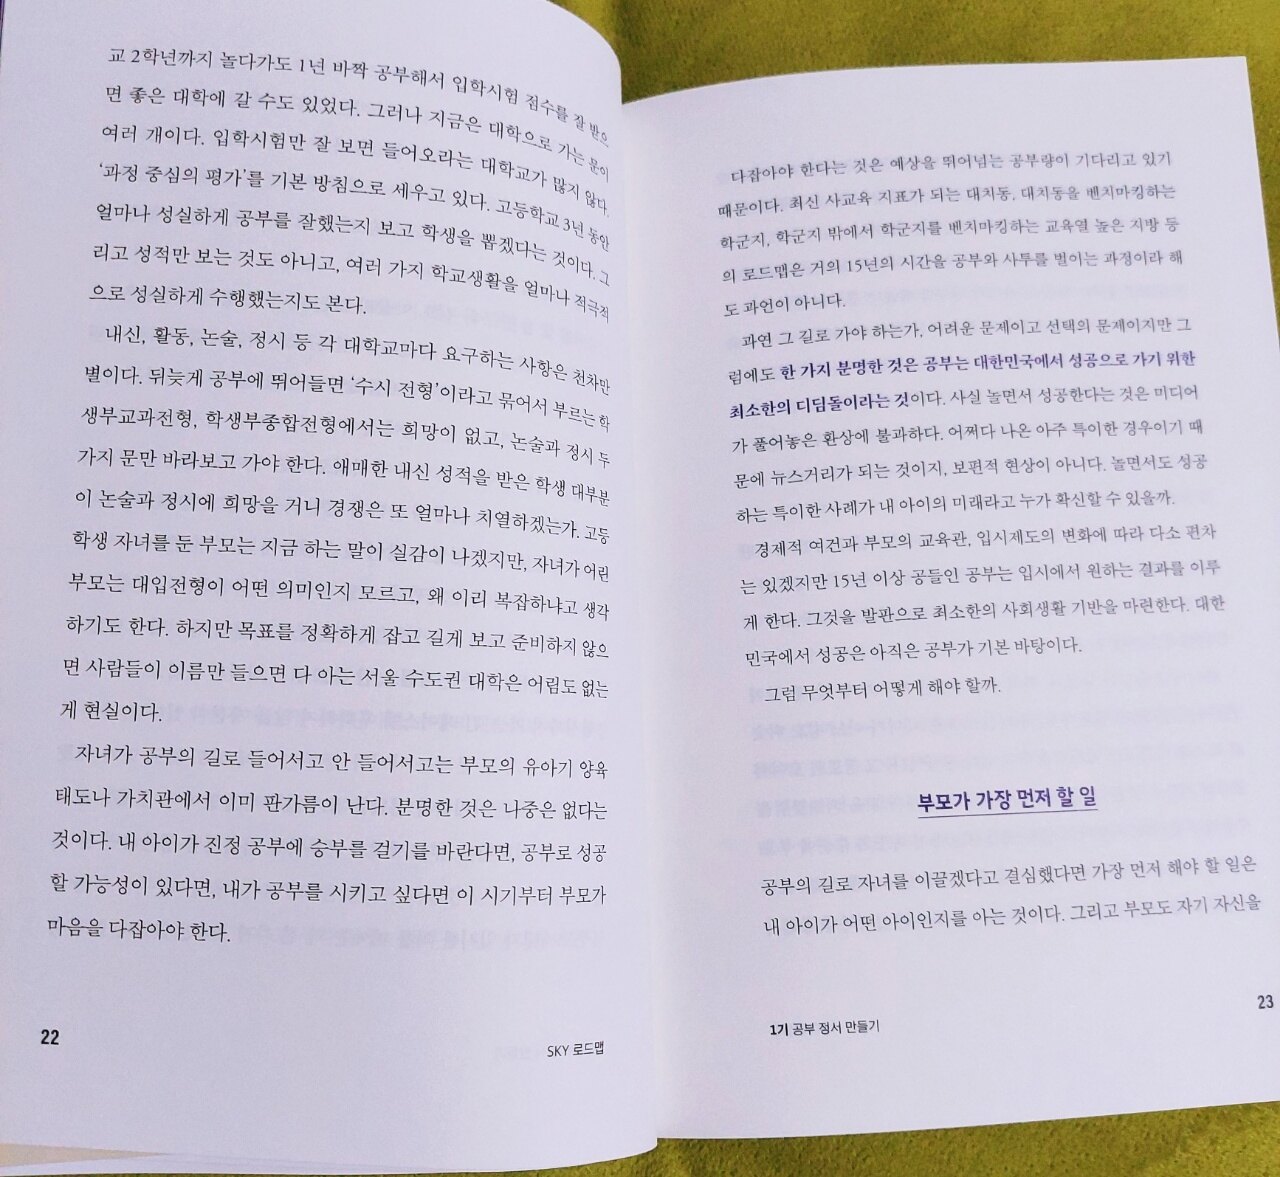 교 2학년까지 놀다가도 1년 바짝 공부해서 입학시험 점수를 잘 받으
면 좋은 대학에 갈 수도 있었다. 그러나 지금은 대학으로 가는 문이
여러 개이다. 입학시험만 잘 보면 들어오라는 대학교가 많지 않다.
'과정 중심의 평가'를 기본 방침으로 세우고 있다. 고등학교 3년 동안
얼마나 성실하게 공부를 잘했는지 보고 학생을 뽑겠다는 것이다. 그
리고 성적만 보는 것도 아니고, 여러 가지 학교생활을 얼마나 적극적
으로 성실하게 수행했는지도 본다.
내신, 활동, 논술, 정시 등 각 대학교마다 요구하는 사항은 천차만
별이다. 뒤늦게 공부에 뛰어들면 '수시 전형'이라고 묶어서 부르는 학
생부교과전형, 학생부종합전형에서는 희망이 없고, 논술과 정시 두
가지 문만 바라보고 가야 한다. 애매한 내신 성적을 받은 학생 대부분
이 논술과 정시에 희망을 거니 경쟁은 또 얼마나 치열하겠는가. 고등
학생 자녀를 둔 부모는 지금 하는 말이 실감이 나겠지만, 자녀가 어린
부모는 대입전형이 어떤 의미인지 모르고, 왜 이리 복잡하냐고 생각
하기도 한다. 하지만 목표를 정확하게 잡고 길게 보고 준비하지 않으
면 사람들이 이름만 들으면 다 아는 서울 수도권 대학은 어림도 없는
게 현실이다.
자녀가 공부의 길로 들어서고 안 들어서고는 부모의 유아기 양육
태도나 가치관에서 이미 판가름이 난다. 분명한 것은 나중은 없다는
것이다. 내 아이가 진정 공부에 승부를 걸기를 바란다면, 공부로 성공
할 가능성이 있다면, 내가 공부를 시키고 싶다면 이 시기부터 부모가
마음을 다잡아야 한다.
22
SKY 로드맵
다잡아야 한다는 것은 예상을 뛰어넘는 공부량이 기다리고 있기
때문이다. 최신 사교육 지표가 되는 대치동, 대치동을 벤치마킹하는
학군지, 학군지 밖에서 학군지를 벤치마킹하는 교육열 높은 지방 등
의 로드맵은 거의 15년의 시간을 공부와 사투를 벌이는 과정이라 해
도 과언이 아니다.
과연 그 길로 가야 하는가, 어려운 문제이고 선택의 문제이지만 그
럼에도 한 가지 분명한 것은 공부는 대한민국에서 성공으로 가기 위한
최소한의 디딤돌이라는 것이다. 사실 놀면서 성공한다는 것은 미디어
가 풀어놓은 환상에 불과하다. 어쩌다 나온 아주 특이한 경우이기 때
문에 뉴스거리가 되는 것이지, 보편적 현상이 아니다. 놀면서도 성공
하는 특이한 사례가 내 아이의 미래라고 누가 확신할 수 있을까.
경제적 여건과 부모의 교육관, 입시제도의 변화에 따라 다소 편차
는 있겠지만 15년 이상 공들인 공부는 입시에서 원하는 결과를 이루
게 한다. 그것을 발판으로 최소한의 사회생활 기반을 마련한다. 대한
민국에서 성공은 아직은 공부가 기본 바탕이다.
그럼 무엇부터 어떻게 해야 할까.
부모가 가장 먼저 할 일
공부의 길로 자녀를 이끌겠다고 결심했다면 가장 먼저 해야 할 일은
내 아이가 어떤 아이인지를 아는 것이다. 그리고 부모도 자기 자신을
1기 공부 정서 만들기
23